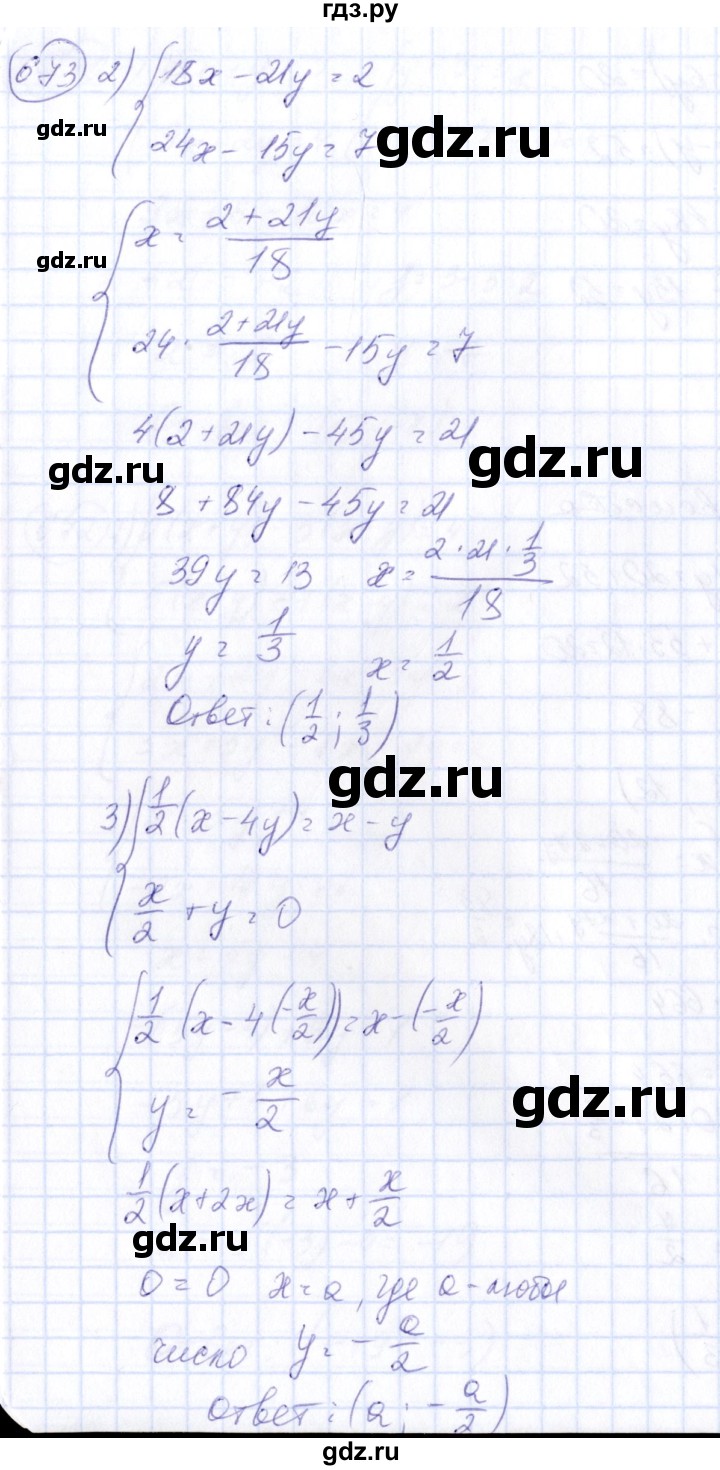 гдз.ру
673 2) { 18x - 21y = 2
gdz.ru
24x - 15y = 7
gdz.ru
{ x = (2 + 21y)/18
gdz.ru
24 · (2+21y)/18 - 15y = 7
4(2+21y) - 45y = 21
gdz.ru
gdz.ru
8 + 84y - 45y = 21
39y = 13 x = (2 · 21 · 1/3)/18
y = 1/3 x = 1/2
Ответ: (1/2; 1/3)
gdz.ru
3) { 1/2(x - 4y) = x - y
x/2 + y = 0
{ 1/2 (x - 4(-x/2)) = x - (-x/2)
y = - x/2
gdz.ru
1/2(x + 2x) = x + x/2
gdz.ru
0 = 0 x = a, где a - любое
число y = - a/2
Ответ: (a; - a/2)
gdz.ru